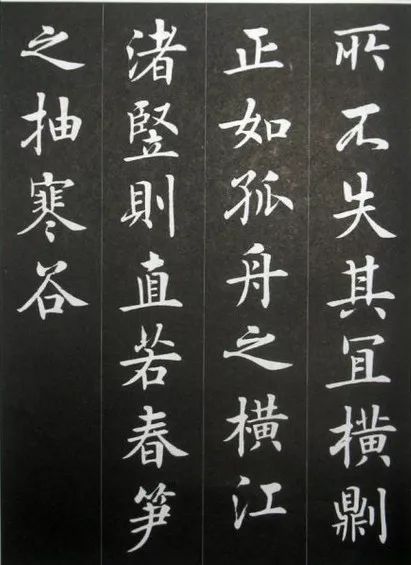 所不失其冝橫𠟭
正如孤舟之橫江
渚竪則直若春笋
之抽寒谷